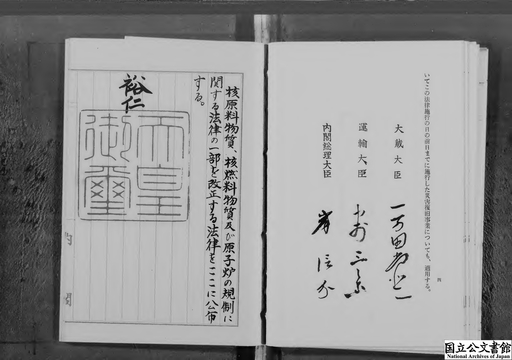 いてこの法律施行の日の前日までに施行した災害復旧事業についても、適用する。
大蔵大臣 一万田尚登
運輸大臣 中村三之丞
内閣総理大臣 岸信介
四
核原料物質、核燃料物質及び原子炉の規制に
関する法律の一部を改正する法律をここに公布
する。
裕仁
天皇
御璽
国立公文書館
National Archives of Japan